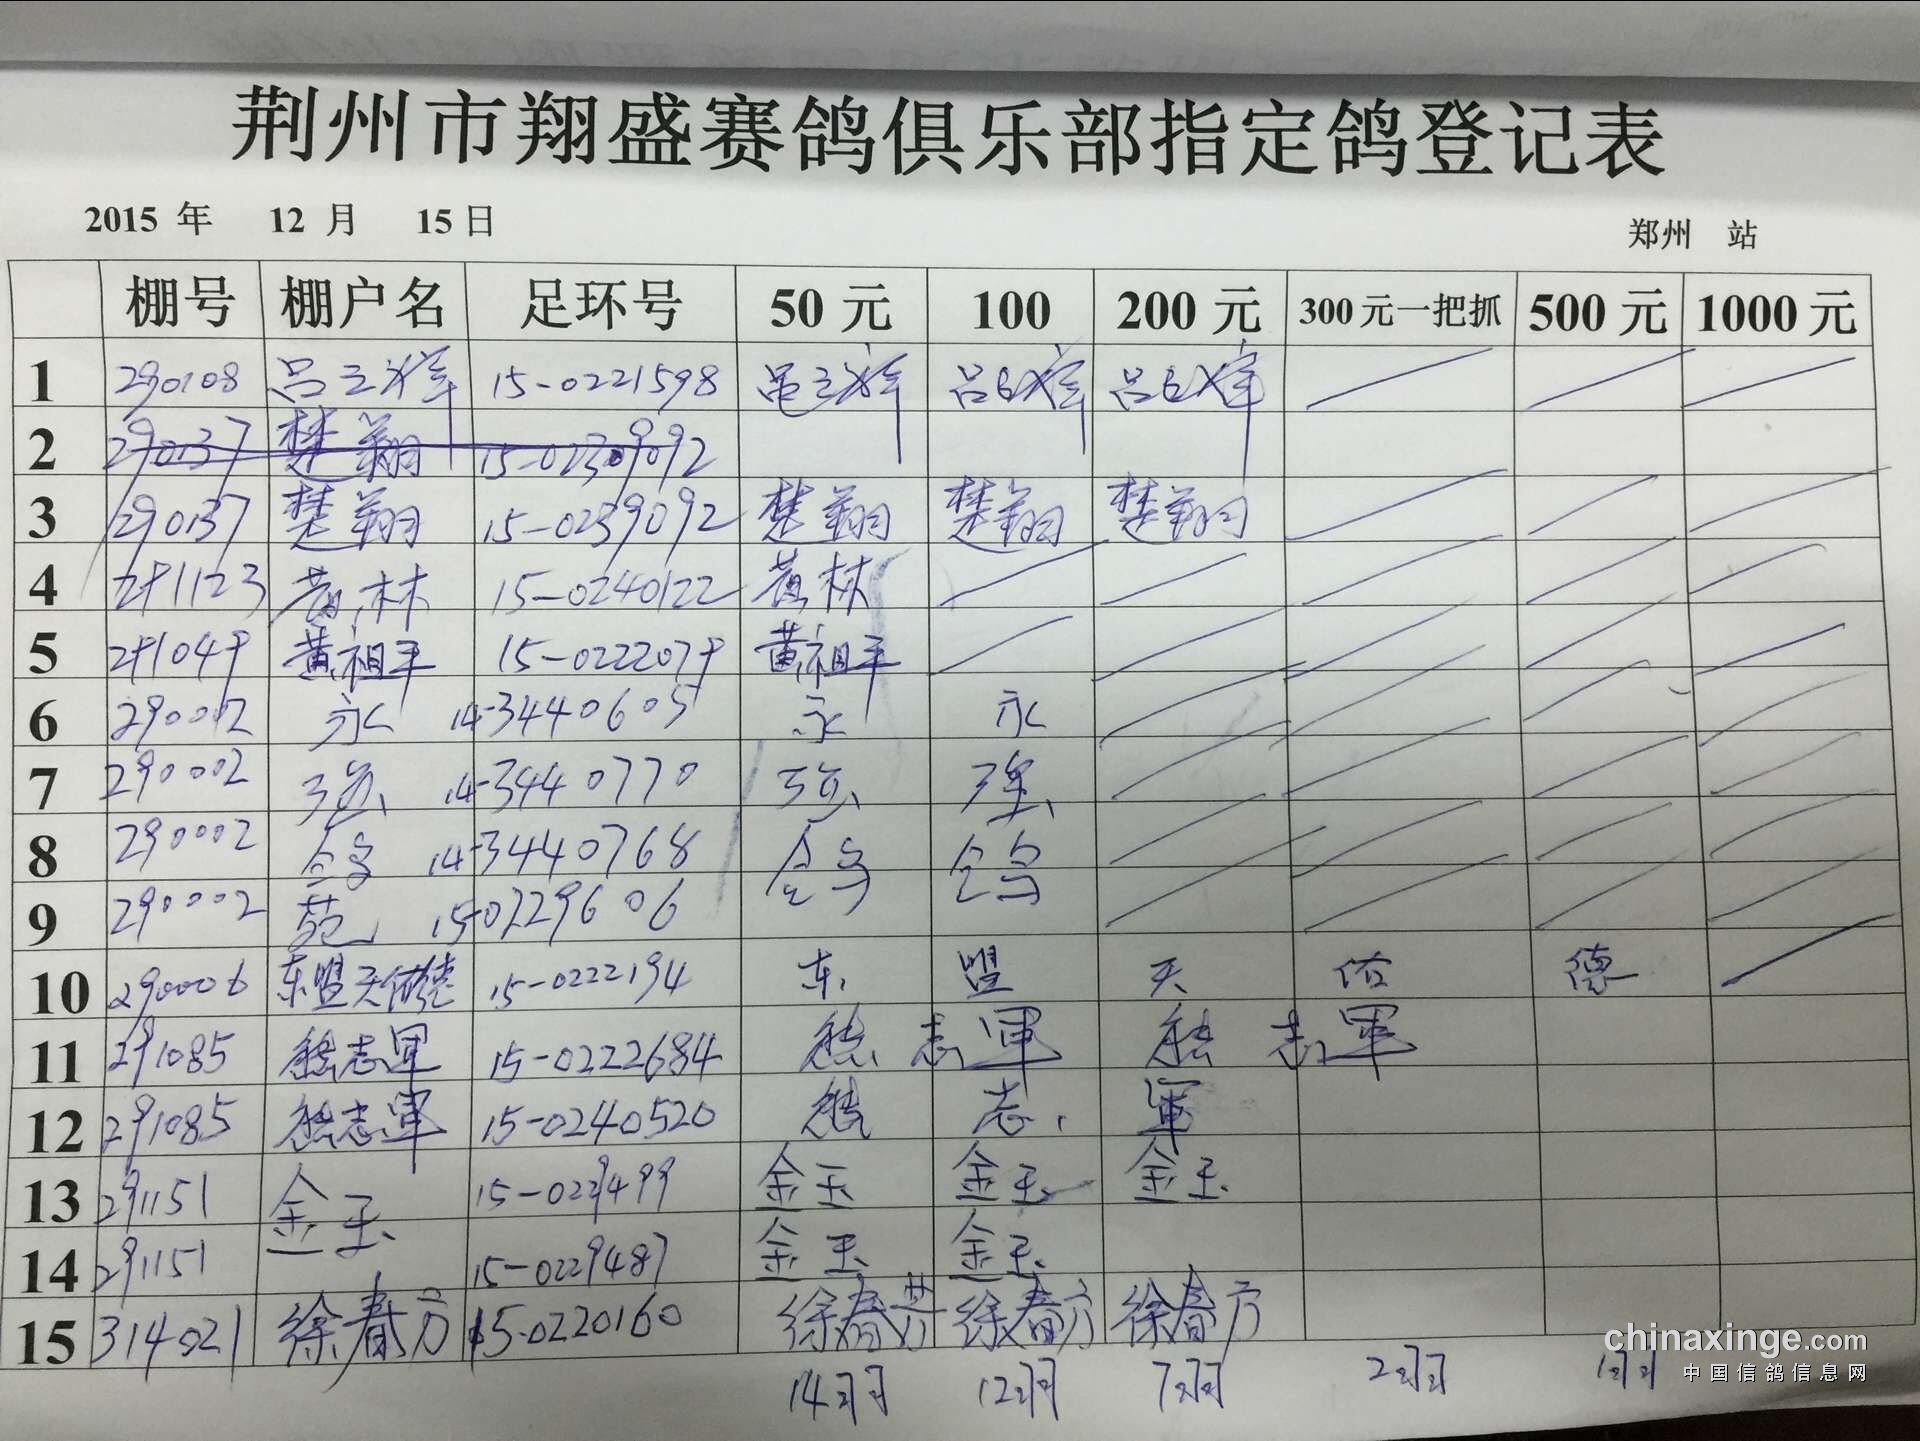 荆州市翔盛赛鸽俱乐部指定鸽登记表
2015 年 12 月 15 日 郑州 站
棚号 棚户名 足环号 50 元 100 200 元 300 元一把抓 500 元 1000 元
1 290108 吕 15-0221598 吕 吕 吕
2 290137 楚翔 15-0239092
3 290137 楚翔 15-0239092 楚翔 楚翔 楚翔
4 291123 黄林 15-0240122 黄林
5 291049 黄祖平 15-0222079 黄祖平
6 290002 永 14-3440605 永 永
7 290002 强 14-3440770 强 强
8 290002 鸽 14-3440768 鸽 鸽
9 290002 苑 15-0229606
10 290006 东盟天佑德 15-0222194 东 盟 天 佑 德
11 291085 熊志军 15-0222684 熊 志 軍 熊 志 軍
12 291085 熊志軍 15-0240520 熊 志 軍
13 291151 金玉 15-0229499 金玉 金玉 金玉
14 291151 15-0229487 金玉 金玉
15 314021 徐春方 15-0220160 徐春芳 徐春方 徐春方
14羽 12羽 7羽 2羽 1羽
chinaxinge.com
中国信鸽信息网